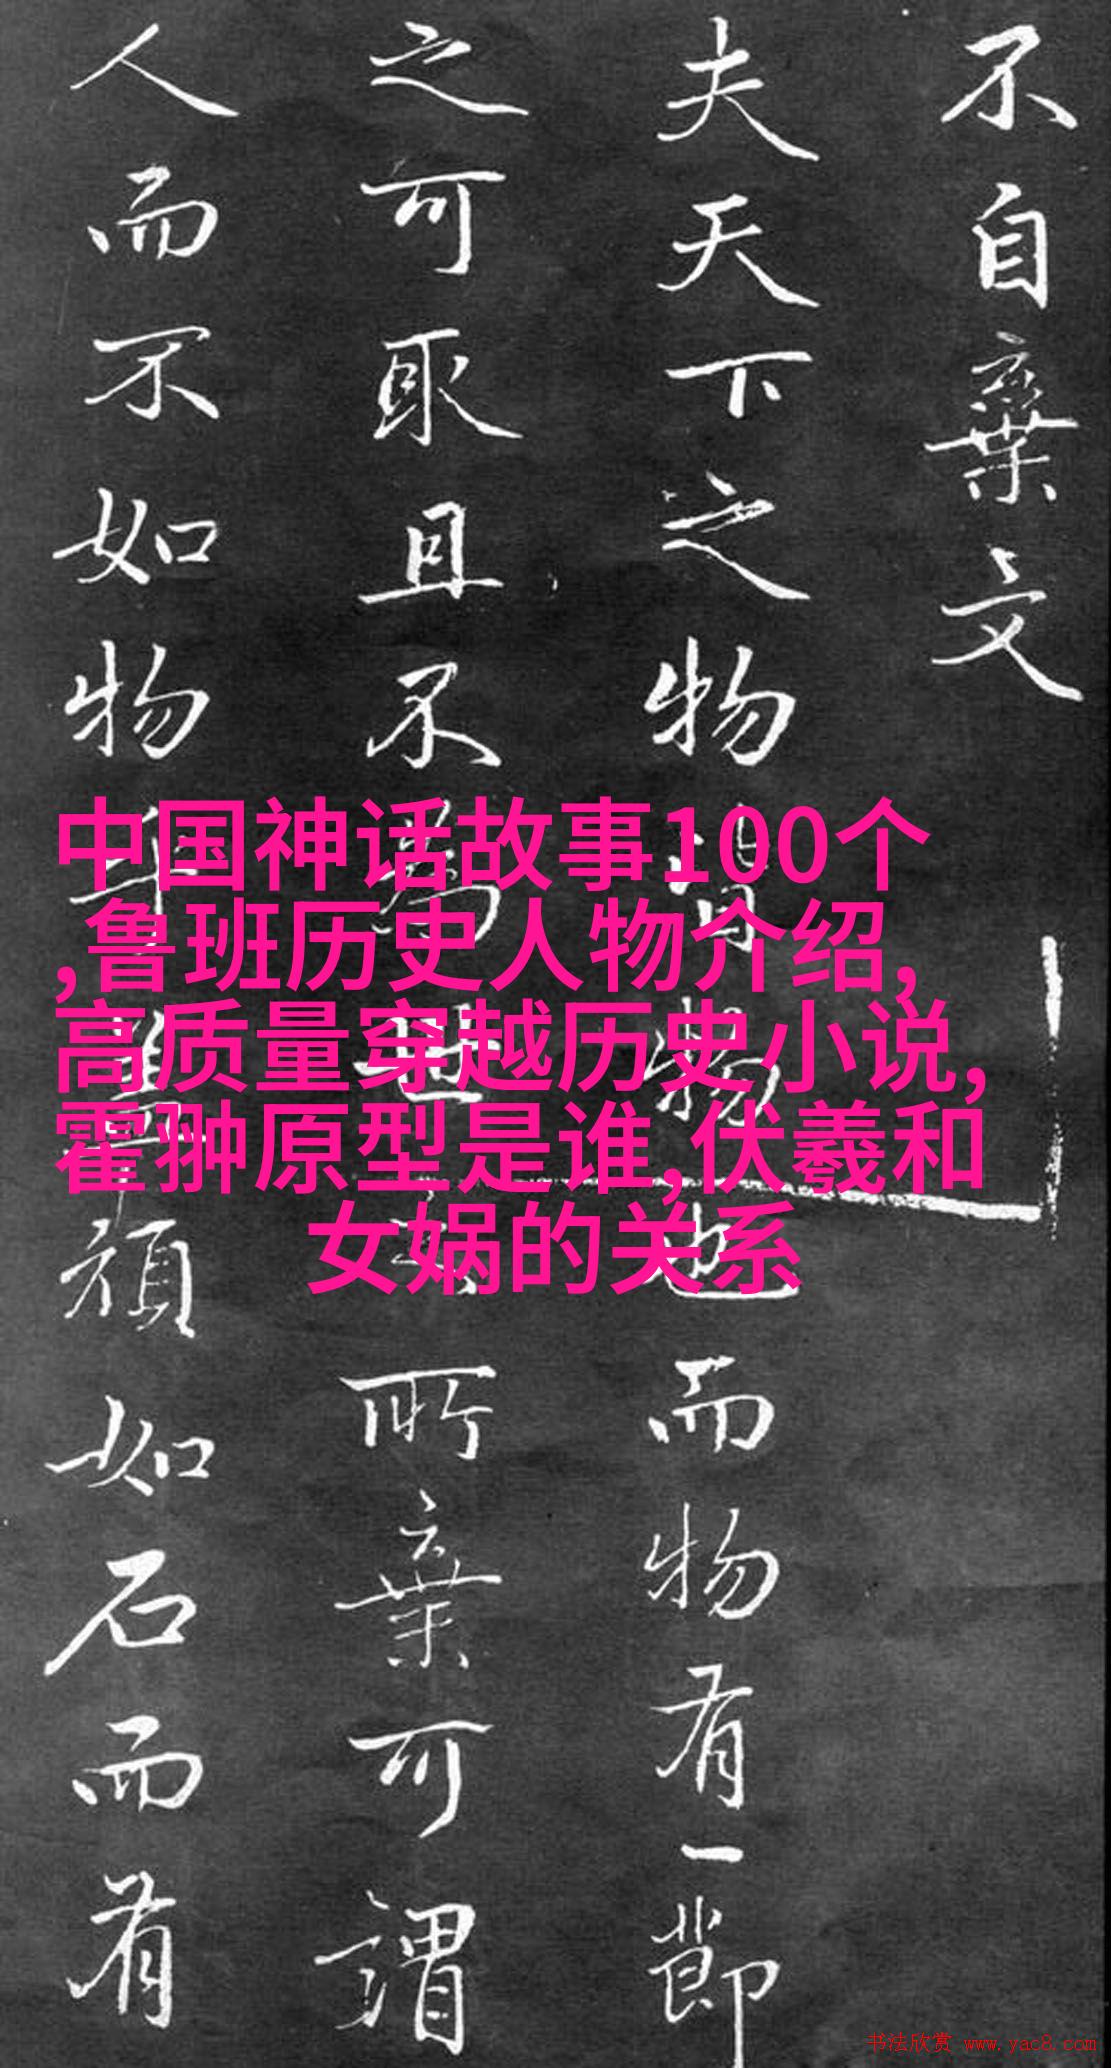 不自棄文
夫天下之物皆物也而物有一節
之可取且不為世之所棄可謂
人而不如物乎蓋頑如石而有
中国神话故事100个
,鲁班历史人物介绍,
高质量穿越历史小说,
霍翀原型是谁,伏羲和
女娲的关系
书法欣赏 www.yac8.com